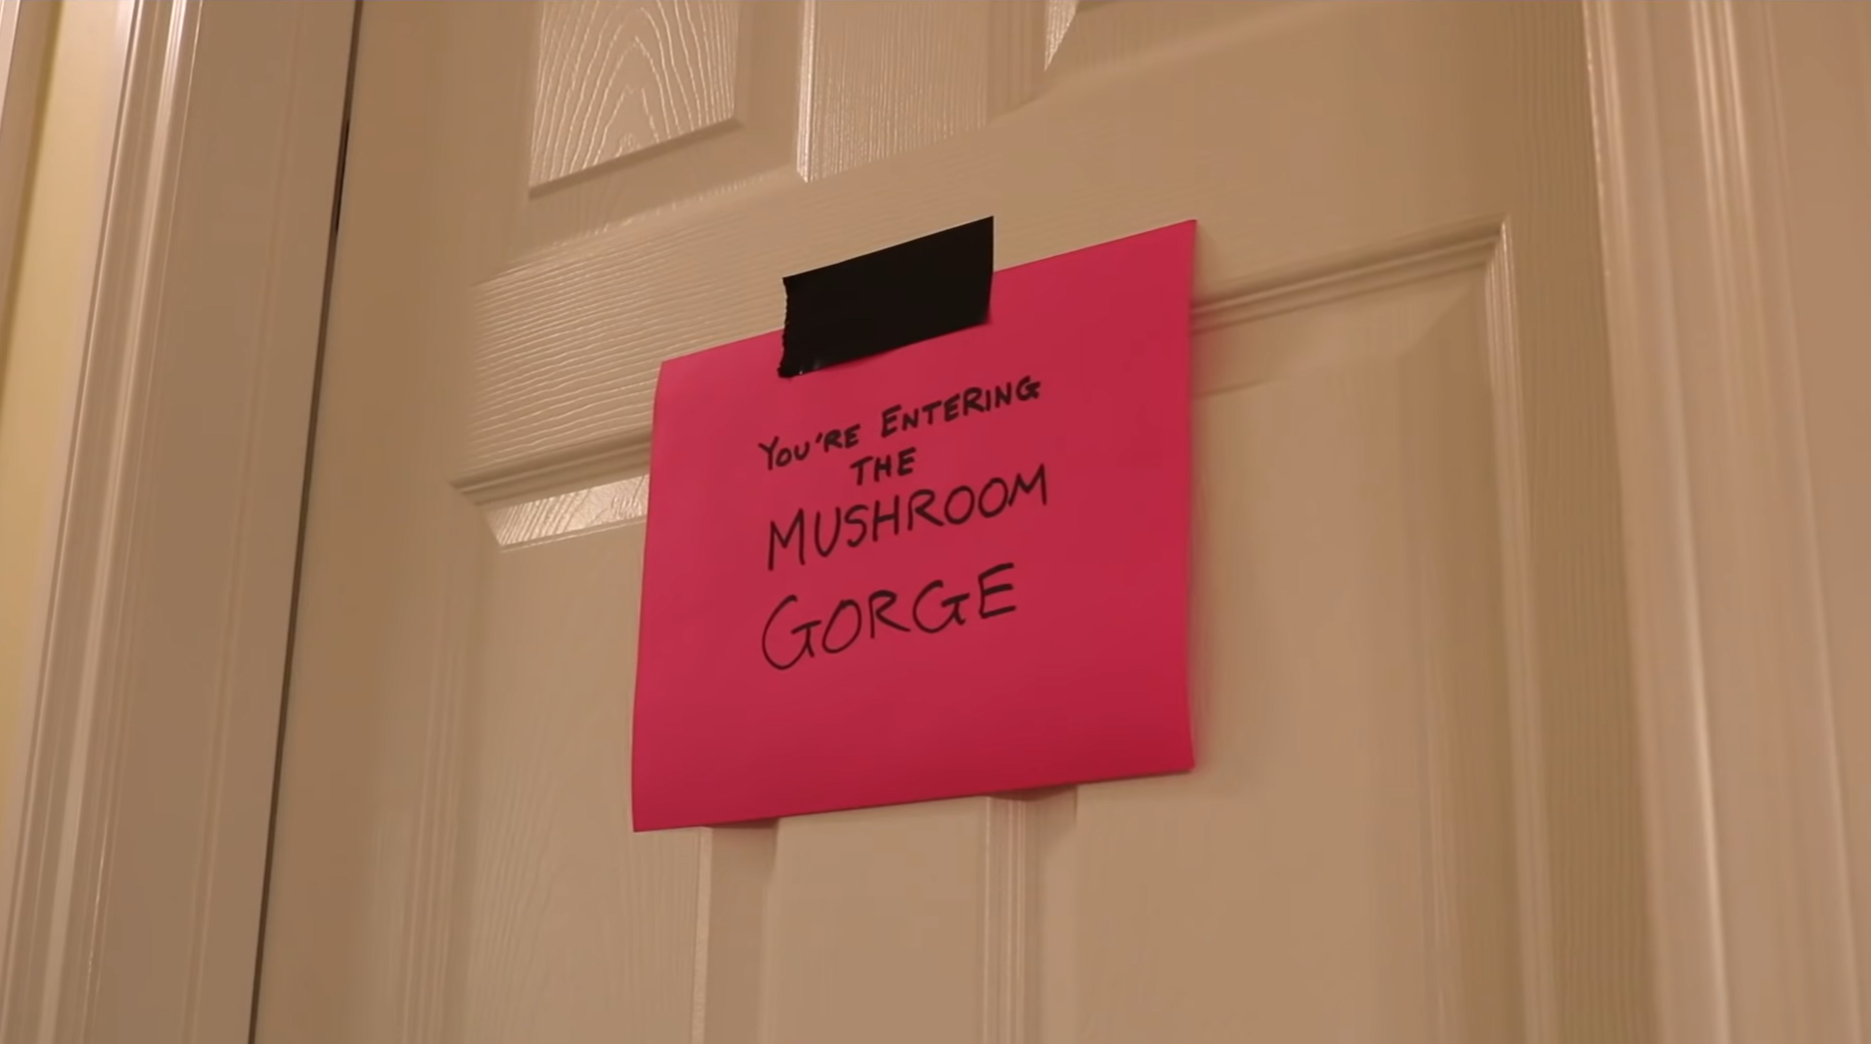 YOU'RE ENTERING
THE
MUSHROOM
GORGE